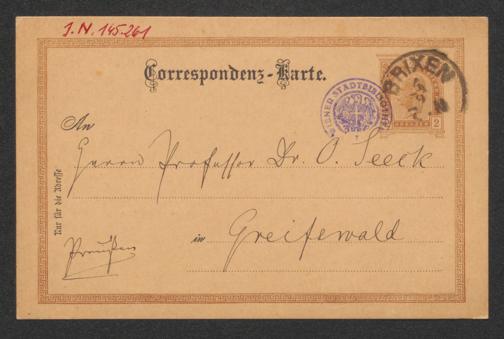 J. N. 145.261
Correspondenz-Karte.
BRIXEN
WIENER STADTBIBLIOTHEK
2
An
Herrn Professor Dr. O. Seeck
Nur für die Adresse
in Greifswald
Preußen